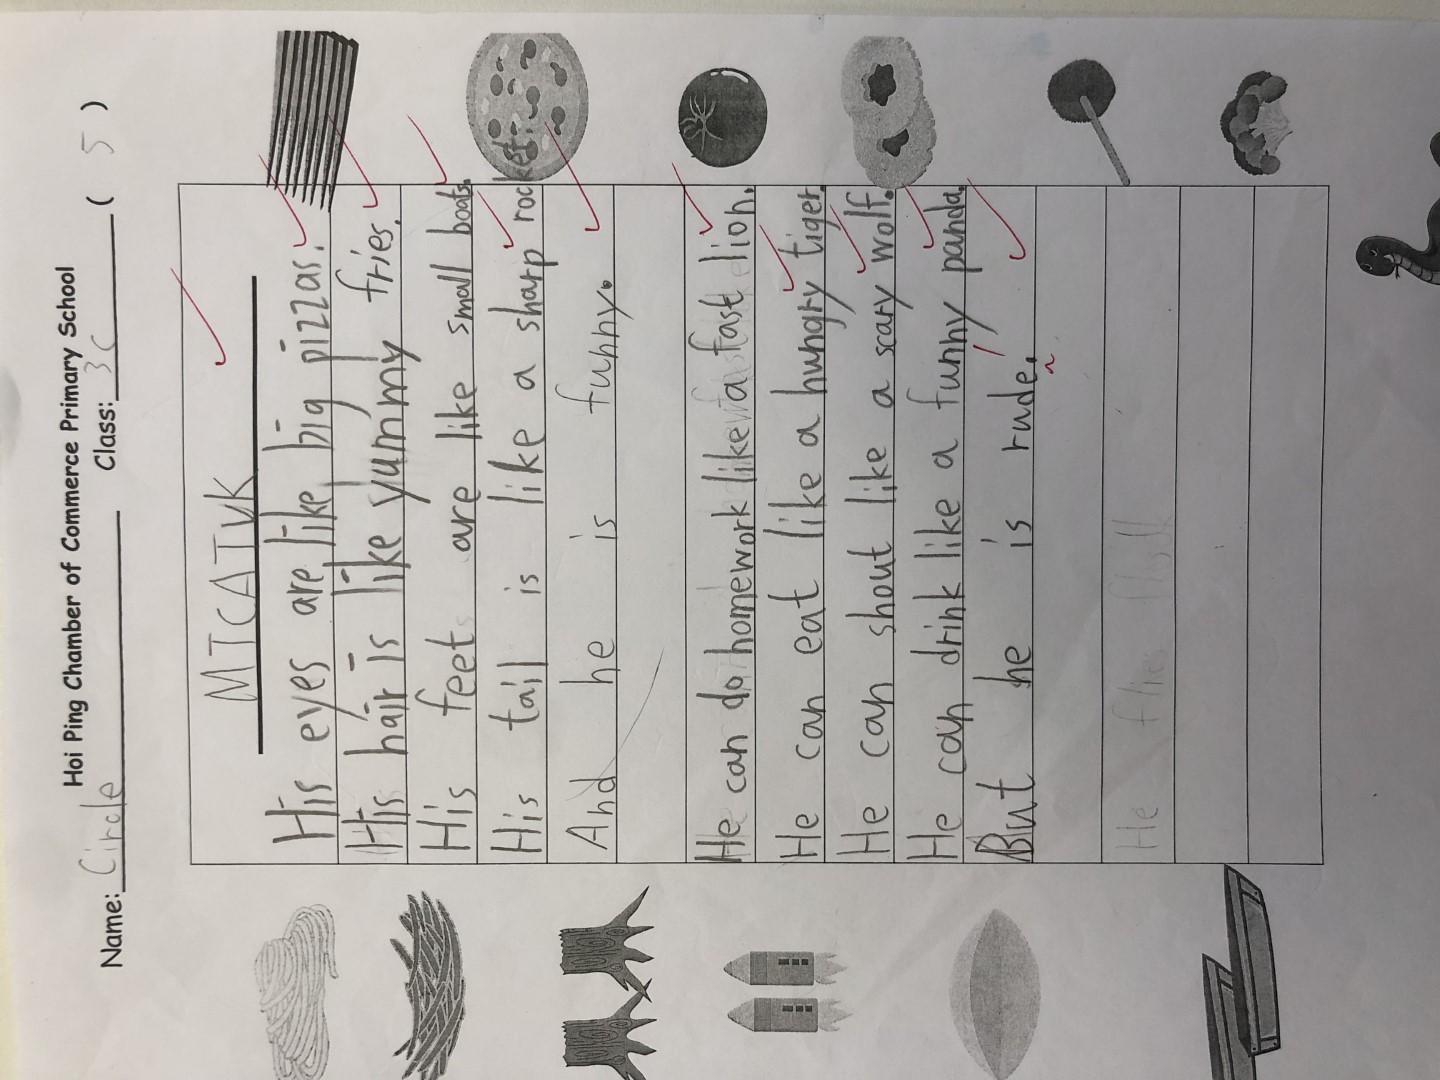 Hoi Ping Chamber of Commerce Primary School
Name: Circle Class: 3C ( 5 )
MTCATVK
His eyes are like big pizzas.
His hair is like yummy fries.
His feet are like small boats.
His tail is like a sharp rocket.
And he is funny.
He can do homework like a fast lion.
He can eat like a hungry tiger.
He can shout like a scary wolf.
He can drink like a funny panda.
But he is rude.
He flies